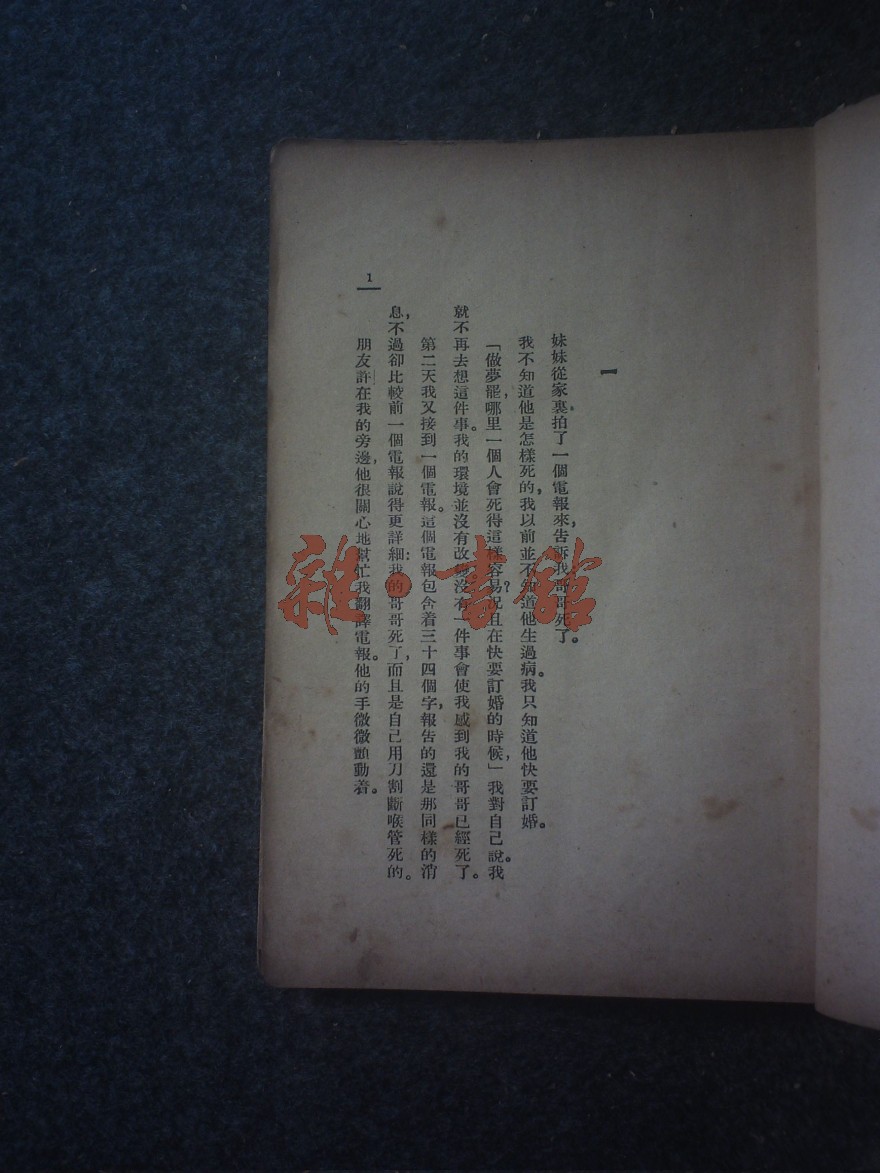 一
妹妹從家裏拍了一個電報來，告訴我哥哥死了。
我不知道他是怎樣死的，我以前並不知道他生過病。我只知道他快要訂婚。
「做夢罷，哪里一個人會死得這樣容易？況且在快要訂婚的時候，」我對自己說。我
就不再去想這件事。我的環境並沒有改變，沒有一件事會使我感到我的哥哥已經死了。
第二天我又接到一個電報。這個電報包含着三十四個字，報告的還是那同樣的消
息，不過卻比較前一個電報說得更詳細：我的哥哥死了，而且是自己用刀割斷喉管死的。
朋友許在我的旁邊，他很關心地幫忙我翻譯電報。他的手微微顫動着。
1
雜·書館